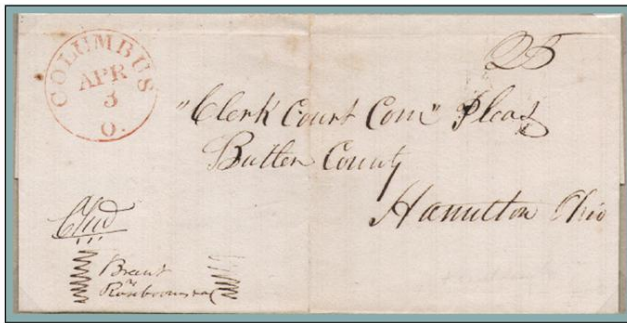 COLUMBUS
APR
3
O.
25
"Clerk Court Com" Pleas
Butler County
Hamilton Ohio
Chd
Brant
vs